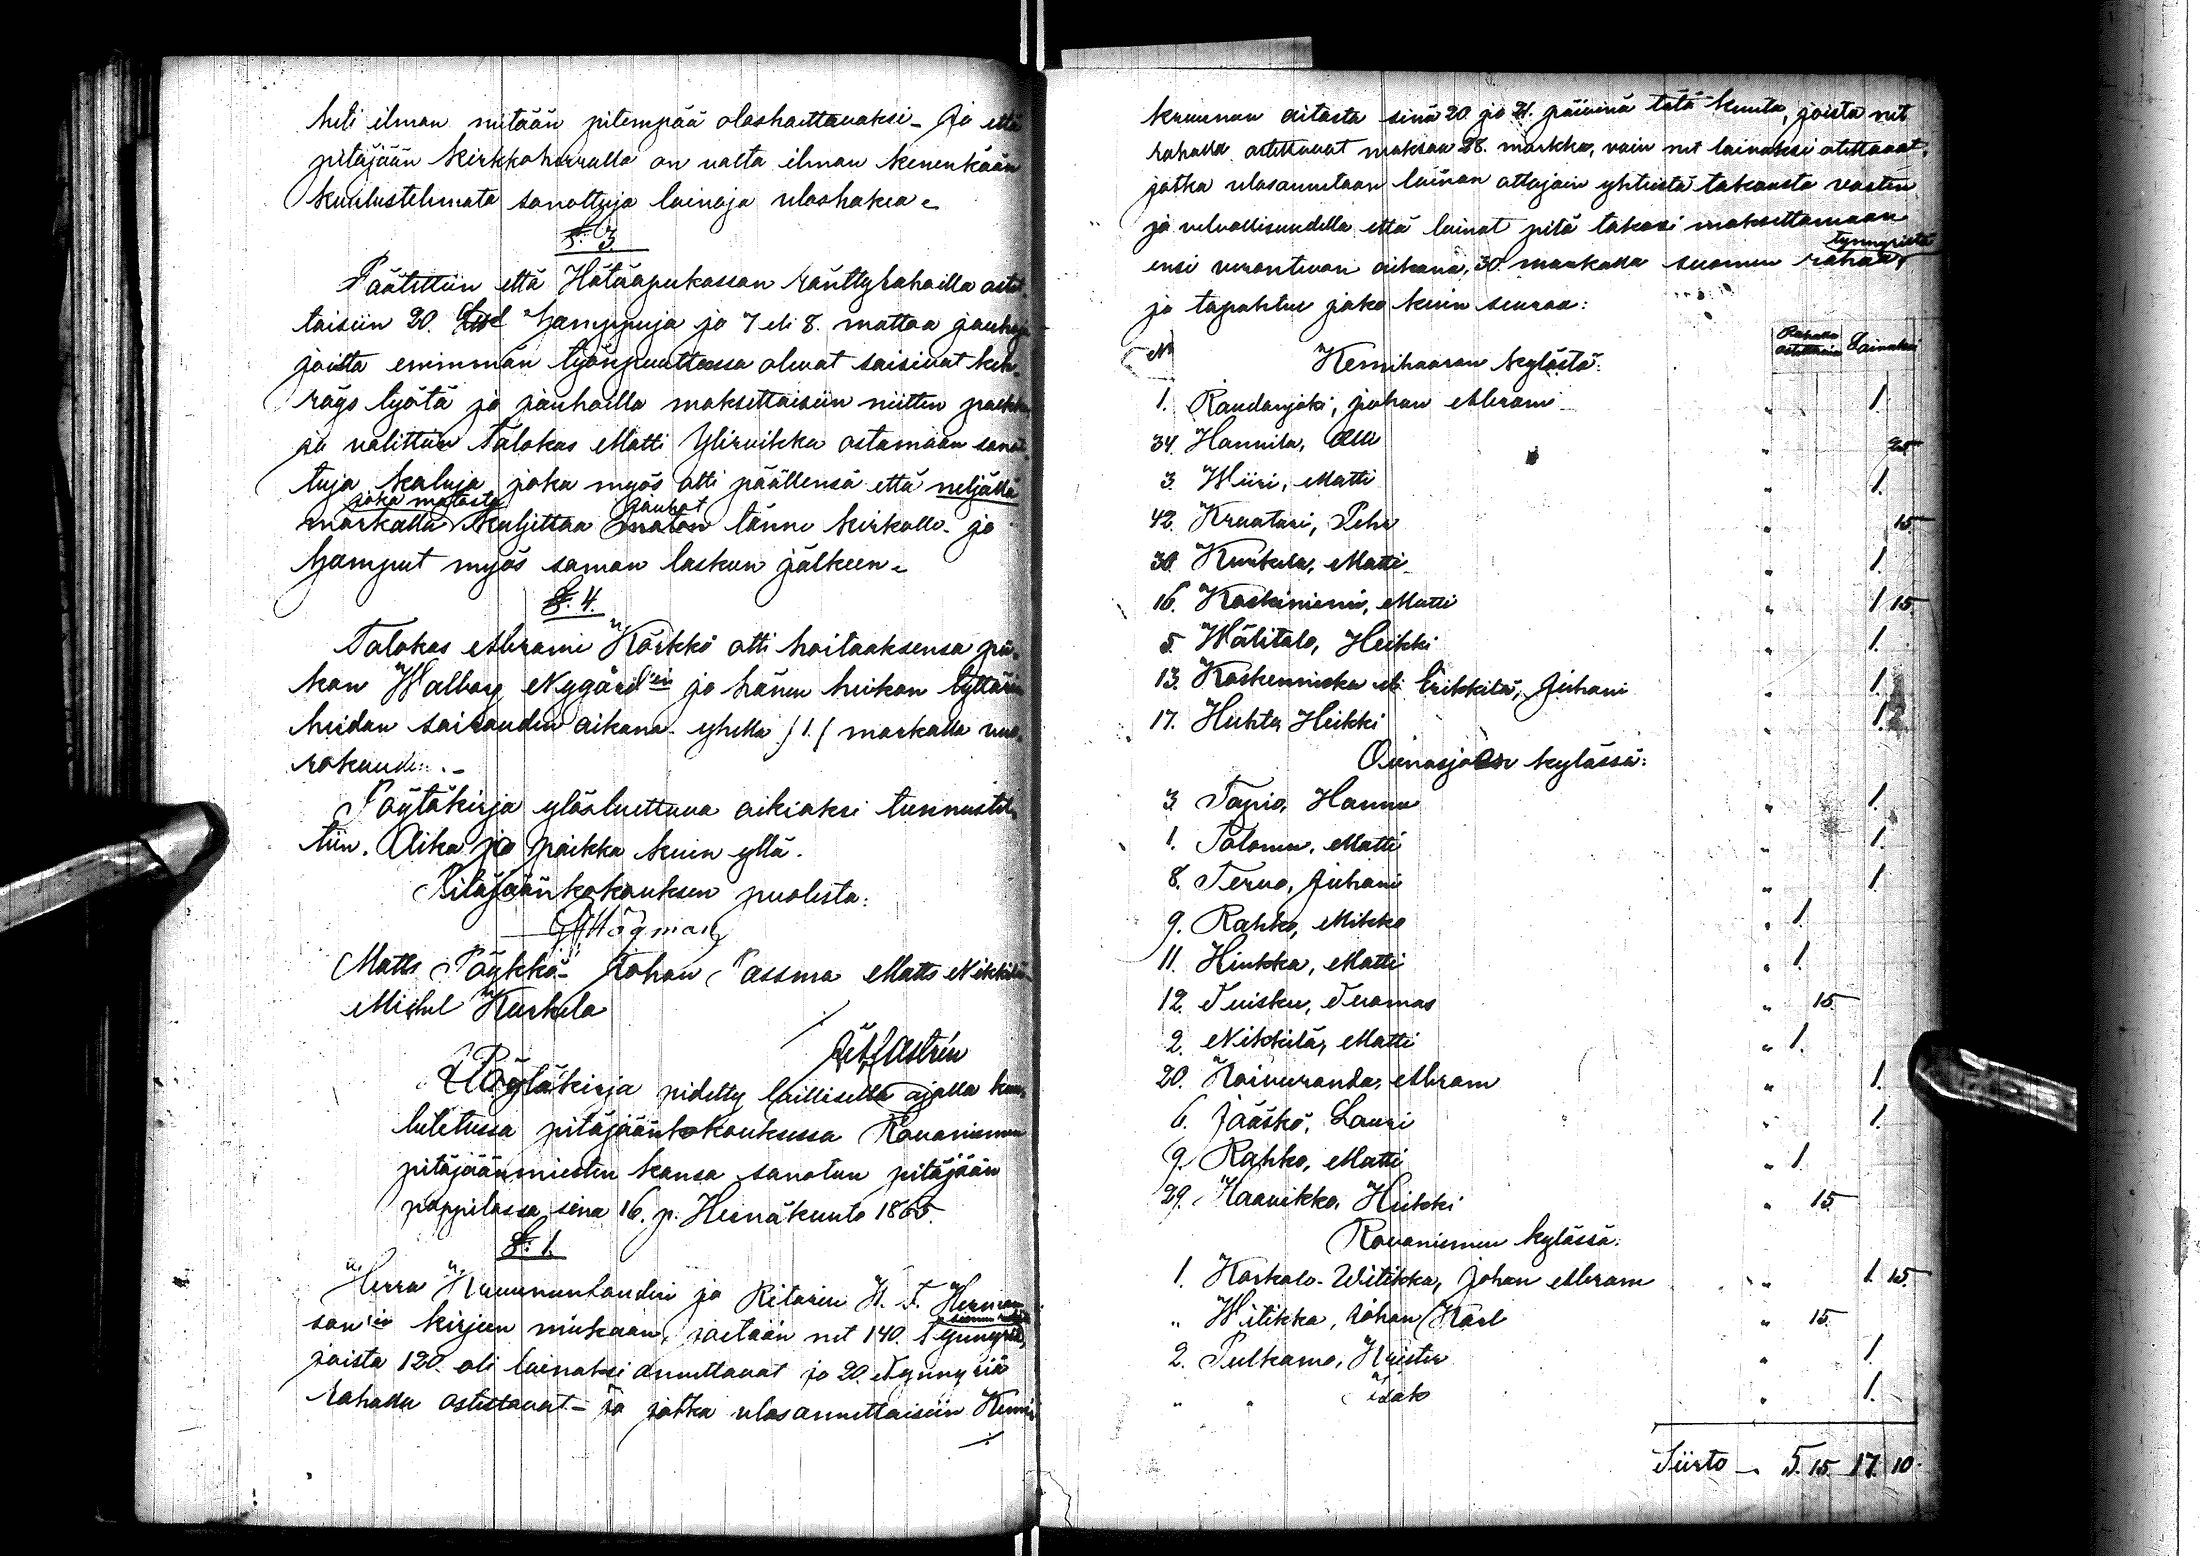 heti ilman mitään pitempää uloshaettavaksi - Ja että
pitäjään Kirkkoherralla on valta ilman kenenkään
kuulustelemata sanottuja lainoja uloshakea.
§. 3.
Päätettiin että Hätäapukassan ränttyrahoilla ostet-
taisiin 20. hamppuja ja 7 eli 8. mattaa jauhoja
joista enimmän työnpuuttessa olevat saisivat keh-
räys työtä ja jauhoilla maksettaisiin niitten palkka
ja valittiin Talokas Matti Ylirvikka ostamaan sanot-
tuja kaluja, joka myös otti päällensä että neljällä
markalla joka matosta kuljettaa jauhot tänne kirkolle ja
hamput myös saman laskun jälkeen.
§. 4.
Talokas Abrami Karkko otti hoitaaksensa pii-
kan Walborg Nygård'in ja hänen heikon tyttären
heidän sairauden aikana yhellä /1./ markalla vuo-
rokaudes.-
Pöytäkirja ylösluettuna oikiaksi tunnustet-
tiin. Aika ja paikka kuin yllä.
Pitäjäänkokouksen puolesta:
Högman
Matts Pöykkö Johan Passma Matts Nikkilä
Michel Kurkela
Pöytäkirja pidetty laillisella ajalla kuu-
lutetussa pitäjäänkokouksessa Rovaniemen
pitäjäänmiesten kansa sanotun pitäjään
pappilassa sinä 16. p. Heinäkuuta 1865.
§. 1.
Herra Kruununvoudin ja Ritarin H. F. Herman
son'in kirjeen mukaan, jaetaan net 140. Tynnyriä,
joista 120. oli lainaksi annettavat ja 20. Tynnyriä
rahalla ostettavat - ja jotka ulosannettaisiin Kemin
kruunun aitasta sinä 20. ja 21. päivinä tätä kuuta, joista net
rahalla ostettavat maksaa 28. markka, vain net lainaksi otettavat,
jotka ulosannetaan lainan ottajain yhteistä takausta vasten
ja velvollisuudella että lainat pitä takasi maksettamaan
ensi verontuon aikana, 30. markalla suomen rahaa tynnyristä
ja tapahtuu jako kuin seuraa:
No Kemihaaran kylästä: Rahalla ostettavia Lainaksi
1. Raudanjoki, Johan Abrami " 1.
34. Hannila, Olli "
3. Wiiri, Matti " 1.
42. Kruatari, Pehr " 15
30. Kurkela, Matti " 1.
16. Koskiniemi, Matti " 1 15
5. Wälitalo, Heikki " 1.
13. Koskenniska eli Erkkilä, Juhani " 1.
17. Huhta, Heikki " 1.
Ounasjoen kylässä:
3. Tapio, Hannu " 1.
1. Tolonen, Matti " 1.
8. Tervo, Juhani " 1.
9. Rahko, Mikko " 1.
11. Hiukka, Matti " 1.
12. Tuisku, Tuomas " 15
2. Nikkilä, Matti " 1.
20. Koivuranda, Abram " 1.
6. Jääskö, Lauri " 1.
9. Rahko, Matti " 1.
29. Kaavikko, Heikki " 15
Rovaniemen kylässä:
1. Korkalo-Witikka, Johan Abram " 1. 15
" Witikka, Johan Karl " 15
2. Pulkamo, Krister " 1.
" " Isak " 1.
Siirto - 5. 15 17. 10.